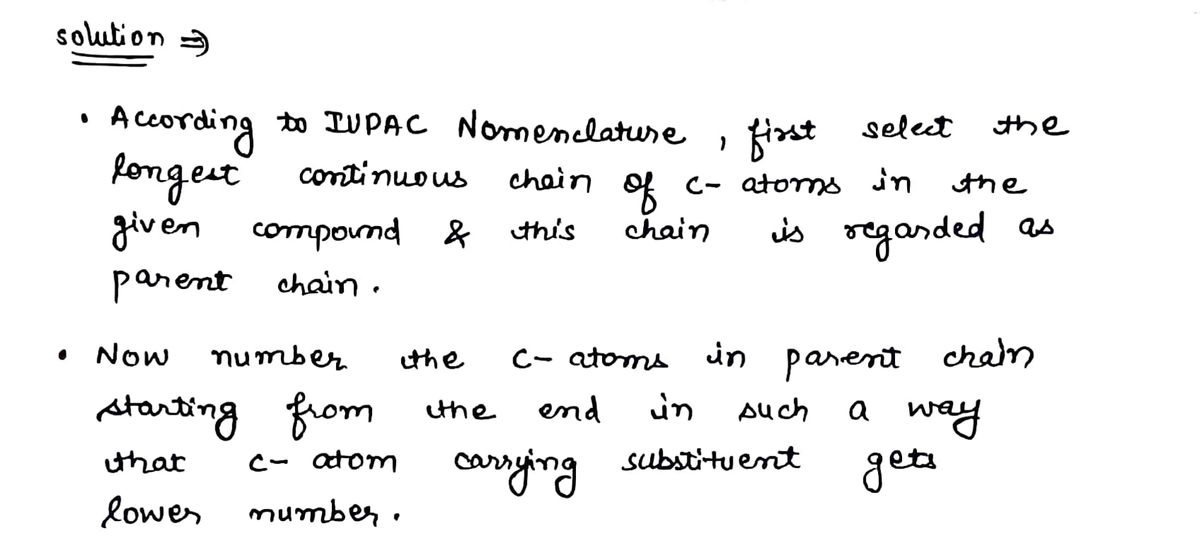 solution ⇒
• According to IUPAC Nomenclature, first select the
longest continuous chain of C- atoms in the
given compound & this chain is regarded as
parent chain.
• Now number the C- atoms in parent chain
starting from the end in such a way
that C- atom carrying substituent gets
lower number.